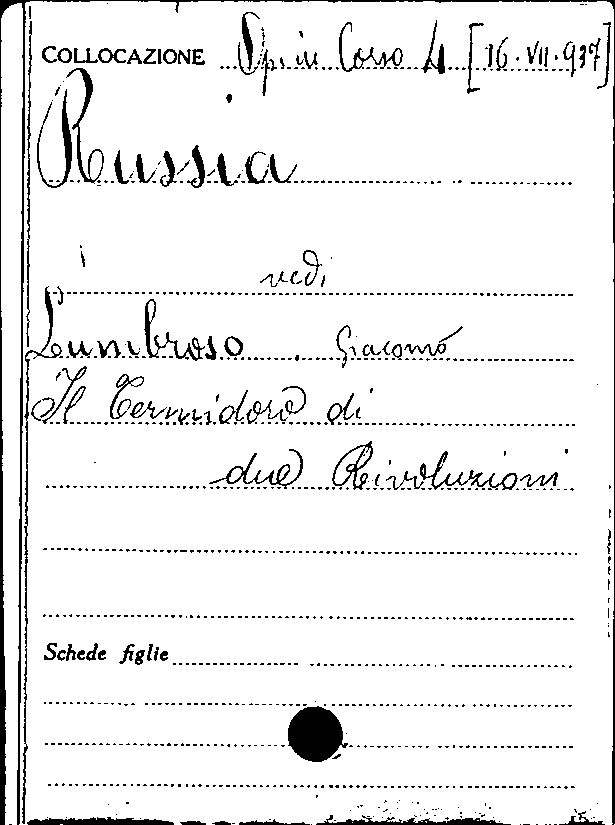 COLLOCAZIONE Op. in Corso 4 [16.VII.937]
Russia
vedi
Lumbroso Giacomo
Il Termidoro di
due Rivoluzioni
Schede figlie